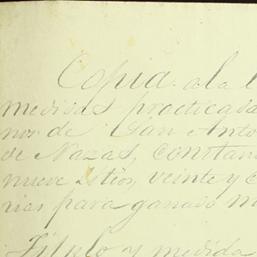 Copia a la l
medidas practicada
nor de San Anto
de Nazas, constan
nueve sitios, veinte y c
rias para ganado m
Titulo y medida